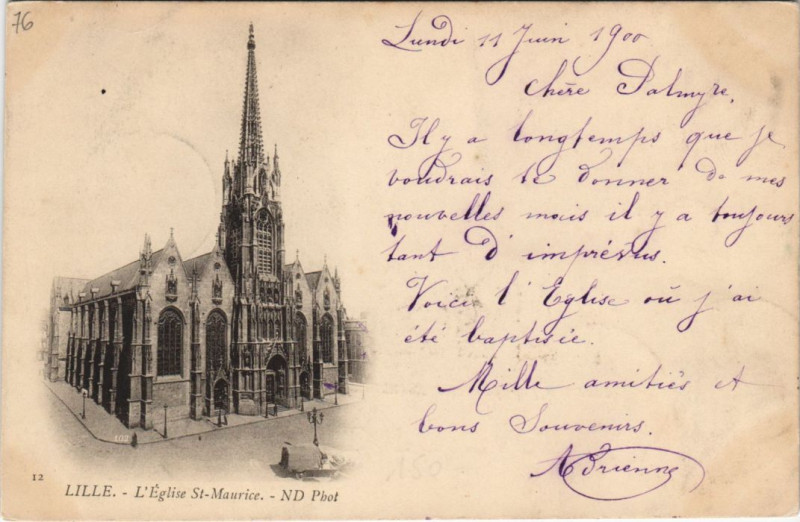 76
Lundi 11 Juin 1900
Chère Palmyre,
Il y a longtemps que je
voudrais te donner de mes
nouvelles mais il y a toujours
tant d'imprévus.
Voici l'Eglise où j'ai
été baptisée.
Mille amitiés et
bons Souvenirs.
Adrienne
102
12
LILLE. - L'Église St-Maurice. - ND Phot